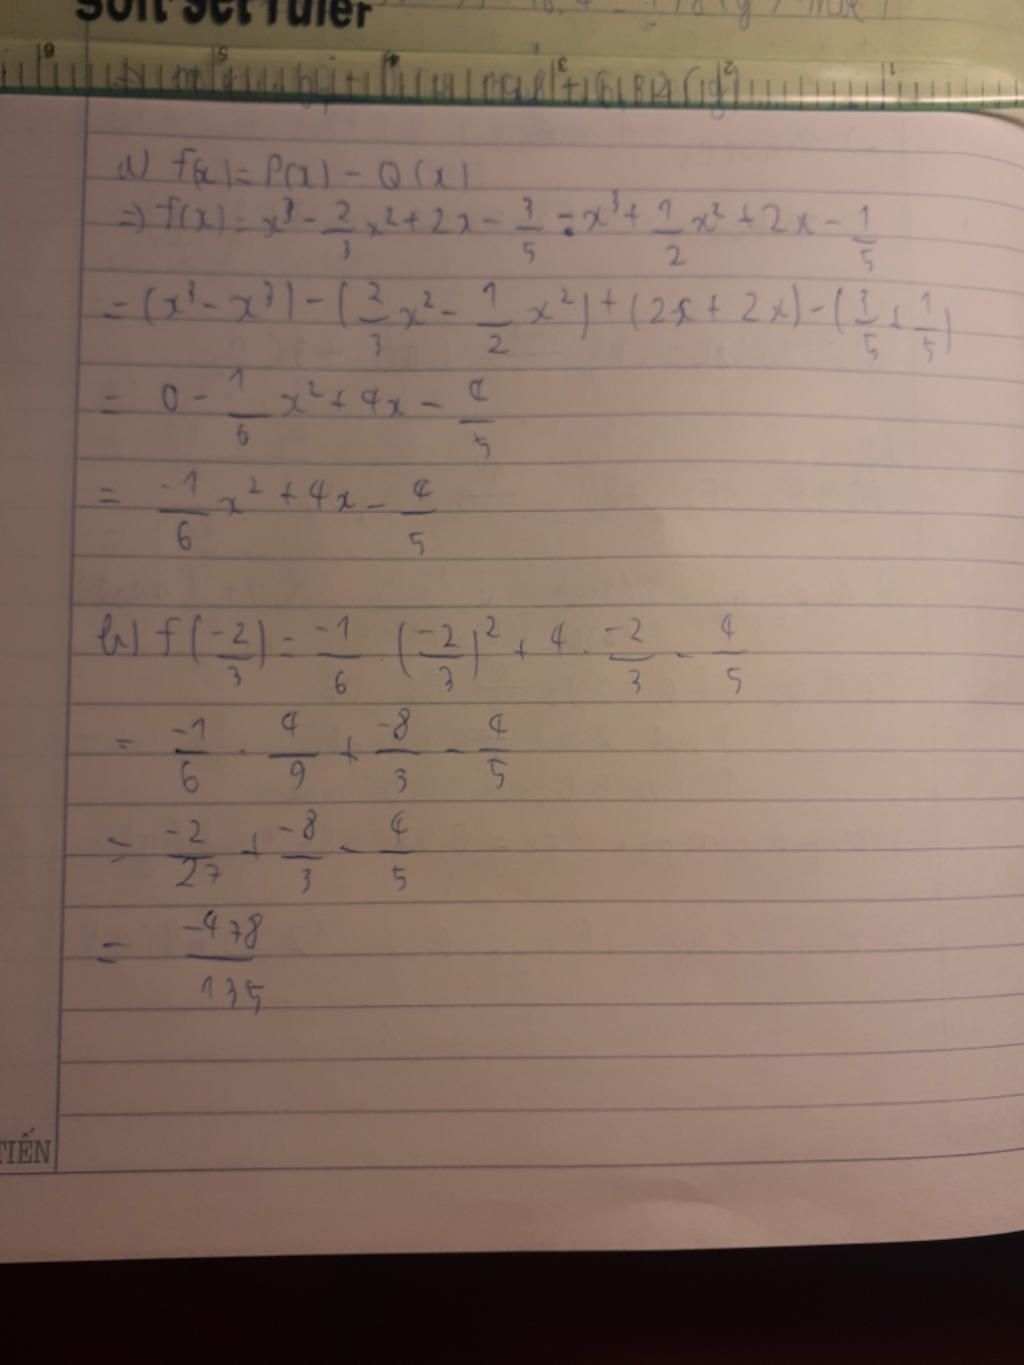 Soft Set ruler
6 5 4 3 2 1
a) f(x) = P(x) - Q(x)
=> f(x) = x³ - 2/3 x² + 2x - 3/5 - x³ + 1/2 x² + 2x - 1/5
= (x³ - x³) - (2/3 x² - 1/2 x²) + (2x + 2x) - (3/5 + 1/5)
= 0 - 1/6 x² + 4x - 4/5
= -1/6 x² + 4x - 4/5
b) f(-2/3) = -1/6 . (-2/3)² + 4 . -2/3 - 4/5
= -1/6 . 4/9 + -8/3 - 4/5
= -2/27 + -8/3 - 4/5
= -478/135
TIẾN